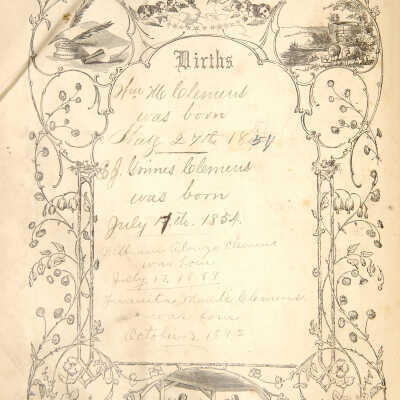 Births
Wm M Clemens
was born
May 27th 1851
E J Clemens
was born
July 17th. 1854.
William Alonzo Clemens
was born
July 13, 1883
Maude Clemens.
was born
October 3, 1892